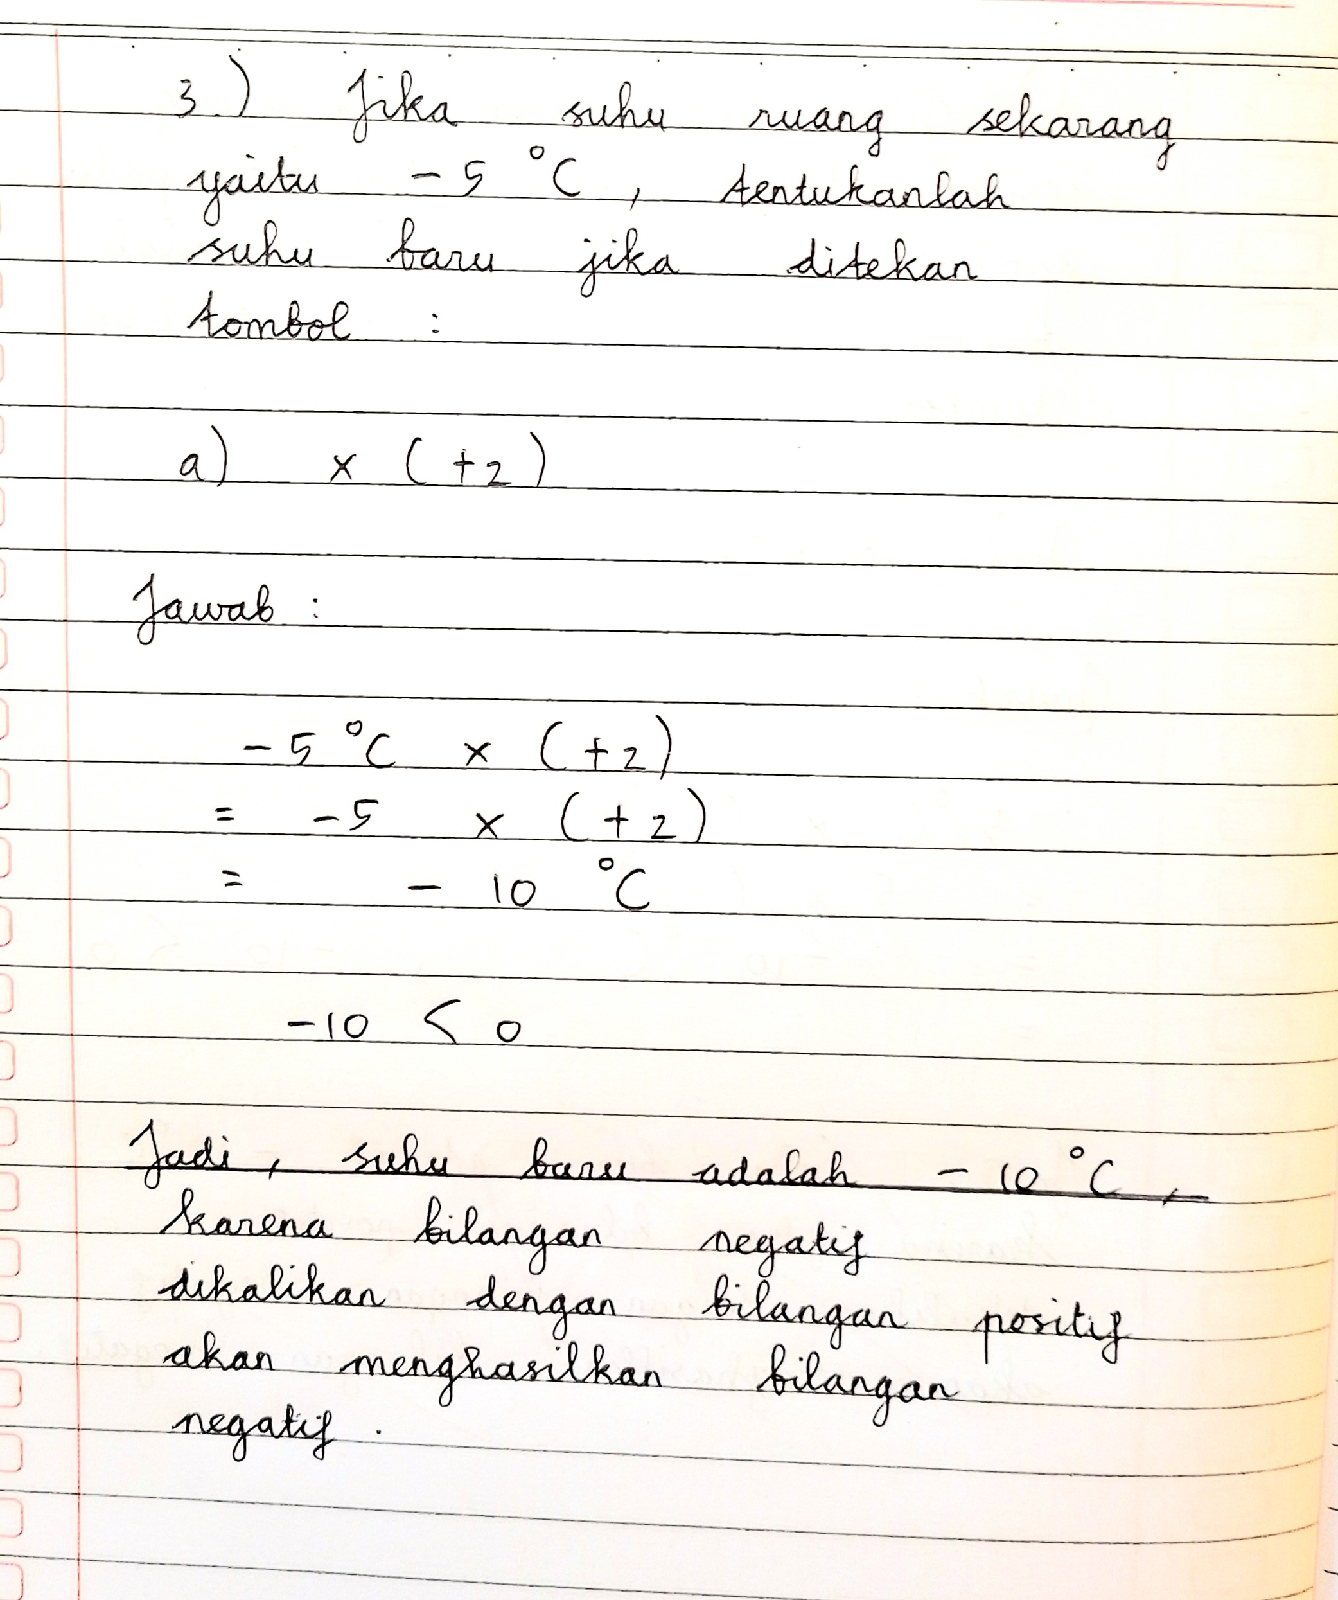 3.) Jika suhu ruang sekarang
yaitu -5 °C, tentukanlah
suhu baru jika ditekan
tombol :
a) x (+2)
Jawab :
-5 °C x (+2)
= -5 x (+2)
= - 10 °C
-10 < 0
Jadi, suhu baru adalah - 10 °C,
karena bilangan negatif
dikalikan dengan bilangan positif
akan menghasilkan bilangan
negatif.